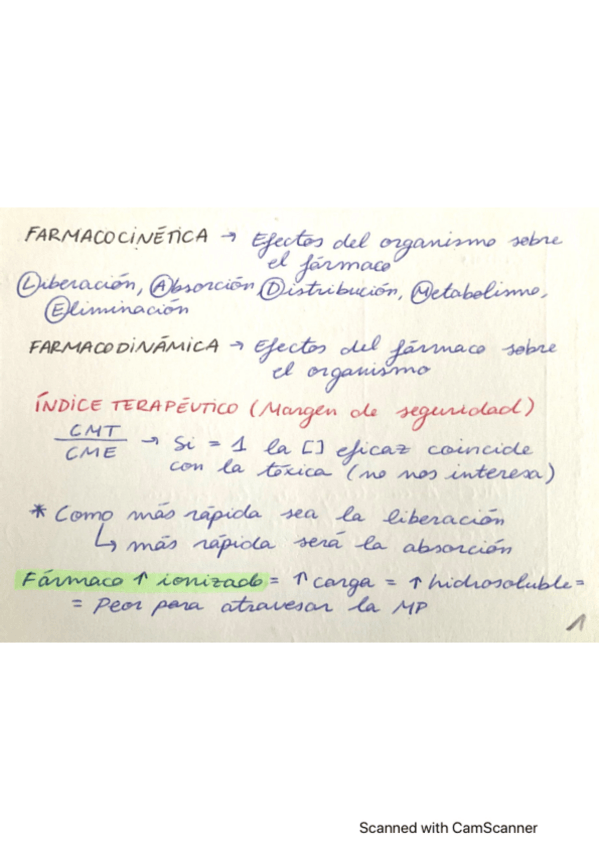 FARMACOCINÉTICA → Efectos del organismo sobre
el fármaco
Liberación, Absorción, Distribución, Metabolismo,
Eliminación
FARMACODINÁMICA → Efectos del fármaco sobre
el organismo
ÍNDICE TERAPÉUTICO (Margen de seguridad)
CMT
CME → Si = 1 la [] eficaz coincide
con la tóxica (no nos interesa)
* Como más rápida sea la liberación
↳ más rápida será la absorción
Fármaco ↑ ionizado = ↑ carga = ↑ hidrosoluble =
= Peor para atravesar la MP
1
Scanned with CamScanner